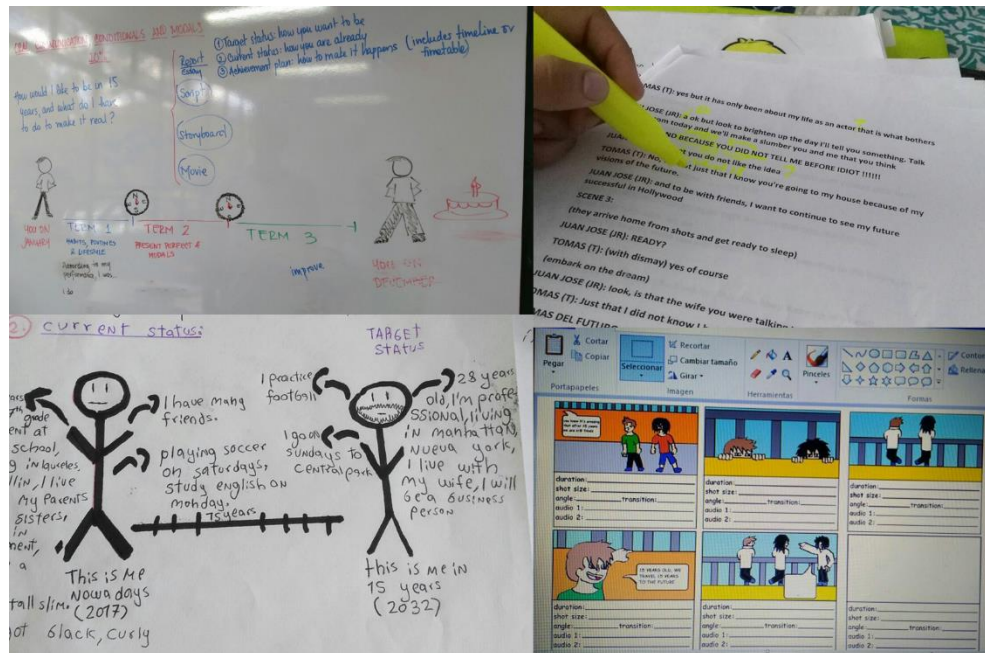 CONDITIONALS AND MODALS
How would I like to be in 15
years, and what do I have
to do to make it real?
Report
Essay
① Target status: how you want to be
② Current status: how you are already
③ Achievement plan: how to make it happens (includes timeline or
timetable)
Script
Storyboard
Movie
YOU ON
JANUARY
TERM 1
HABITS, ROUTINES
& LIFESTYLE
TERM 2
PRESENT PERFECT &
MODALS
TERM 3
improve
YOU ON
DECEMBER
TOMAS (T): yes but it has only been about my life as an actor that is what bothers
JOSE (JR): a ok but look to brighten up the day I'll tell you something. Talk
today and we'll make a slumber you and me that you think
AND BECAUSE YOU DID NOT TELL ME BEFORE IDIOT !!!!!!
you do not like the idea
TOMAS (T): No, just that I know you're going to my house because of my
visions of the future.
JUAN JOSE (JR): and to be with friends, I want to continue to see my future
successful in Hollywood
SCENE 3:
(they arrive home from shots and get ready to sleep)
JUAN JOSE (JR): READY?
TOMAS (T): (with dismay) yes of course
(embark on the dream)
JUAN JOSE (JR): look, is that the wife you were talking
TOMAS (T): Just that I did not know
TOMAS DEL FUTURO
2. current status:
grade
at
school,
I live
My Parents
Sisters,
in
a
tall slim.
got black, curly
I have many
friends.
playing soccer
on saturdays,
study english on
monday.
15 years
This is Me
Nowadays
(2017)
TARGET
STATUS
I practice
football
I go on
sundays to
central park
28 years
old, I'm profe
ssional, living
in manhattan,
Nueva york,
I live with
my wife, I will
be a business
person
this is me in
15 years
(2032)
Pegar
Cortar
Copiar
Portapapeles
Seleccionar
Recortar
Cambiar tamaño
Girar
Imagen
Herramientas
Pinceles
Formas
Contorno
Relleno
duration:
shot size:
angle: transition:
audio 1:
audio 2:
duration:
shot size:
angle: transition:
audio 1:
audio 2:
duration:
shot size:
angle: transition:
audio 1:
audio 2:
15 YEARS OLD, WE
TRAVEL 15 YEARS
TO THE FUTURE
duration:
shot size:
angle: transition:
audio 1:
audio 2:
duration:
shot size:
angle: transition:
audio 1:
audio 2:
duration:
shot size:
angle: transition:
audio 1:
audio 2: